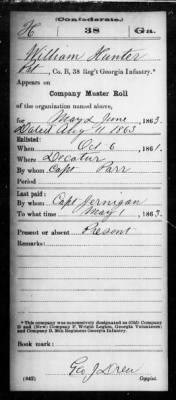 (Confederate.)
H 38 Ga.
William Hunter
Pvt, Co. B, 38 Reg't Georgia Infantry.*
Appears on
Company Muster Roll
of the organization named above,
for May & June, 1863.
Dated Aug 11 1863
Enlisted:
When Oct 6, 1861.
Where Decatur
By whom Capt Parr
Period
Last paid:
By whom Capt Jernigan
To what time May 1, 1863.
Present or absent Present
Remarks:
*This company was successively designated as (Old) Company
D and (New) Company F, Wright Legion, Georgia Volunteers;
and Company B, 38th Regiment Georgia Infantry.
Book mark:
Geo J Drew
(642) Copyist.